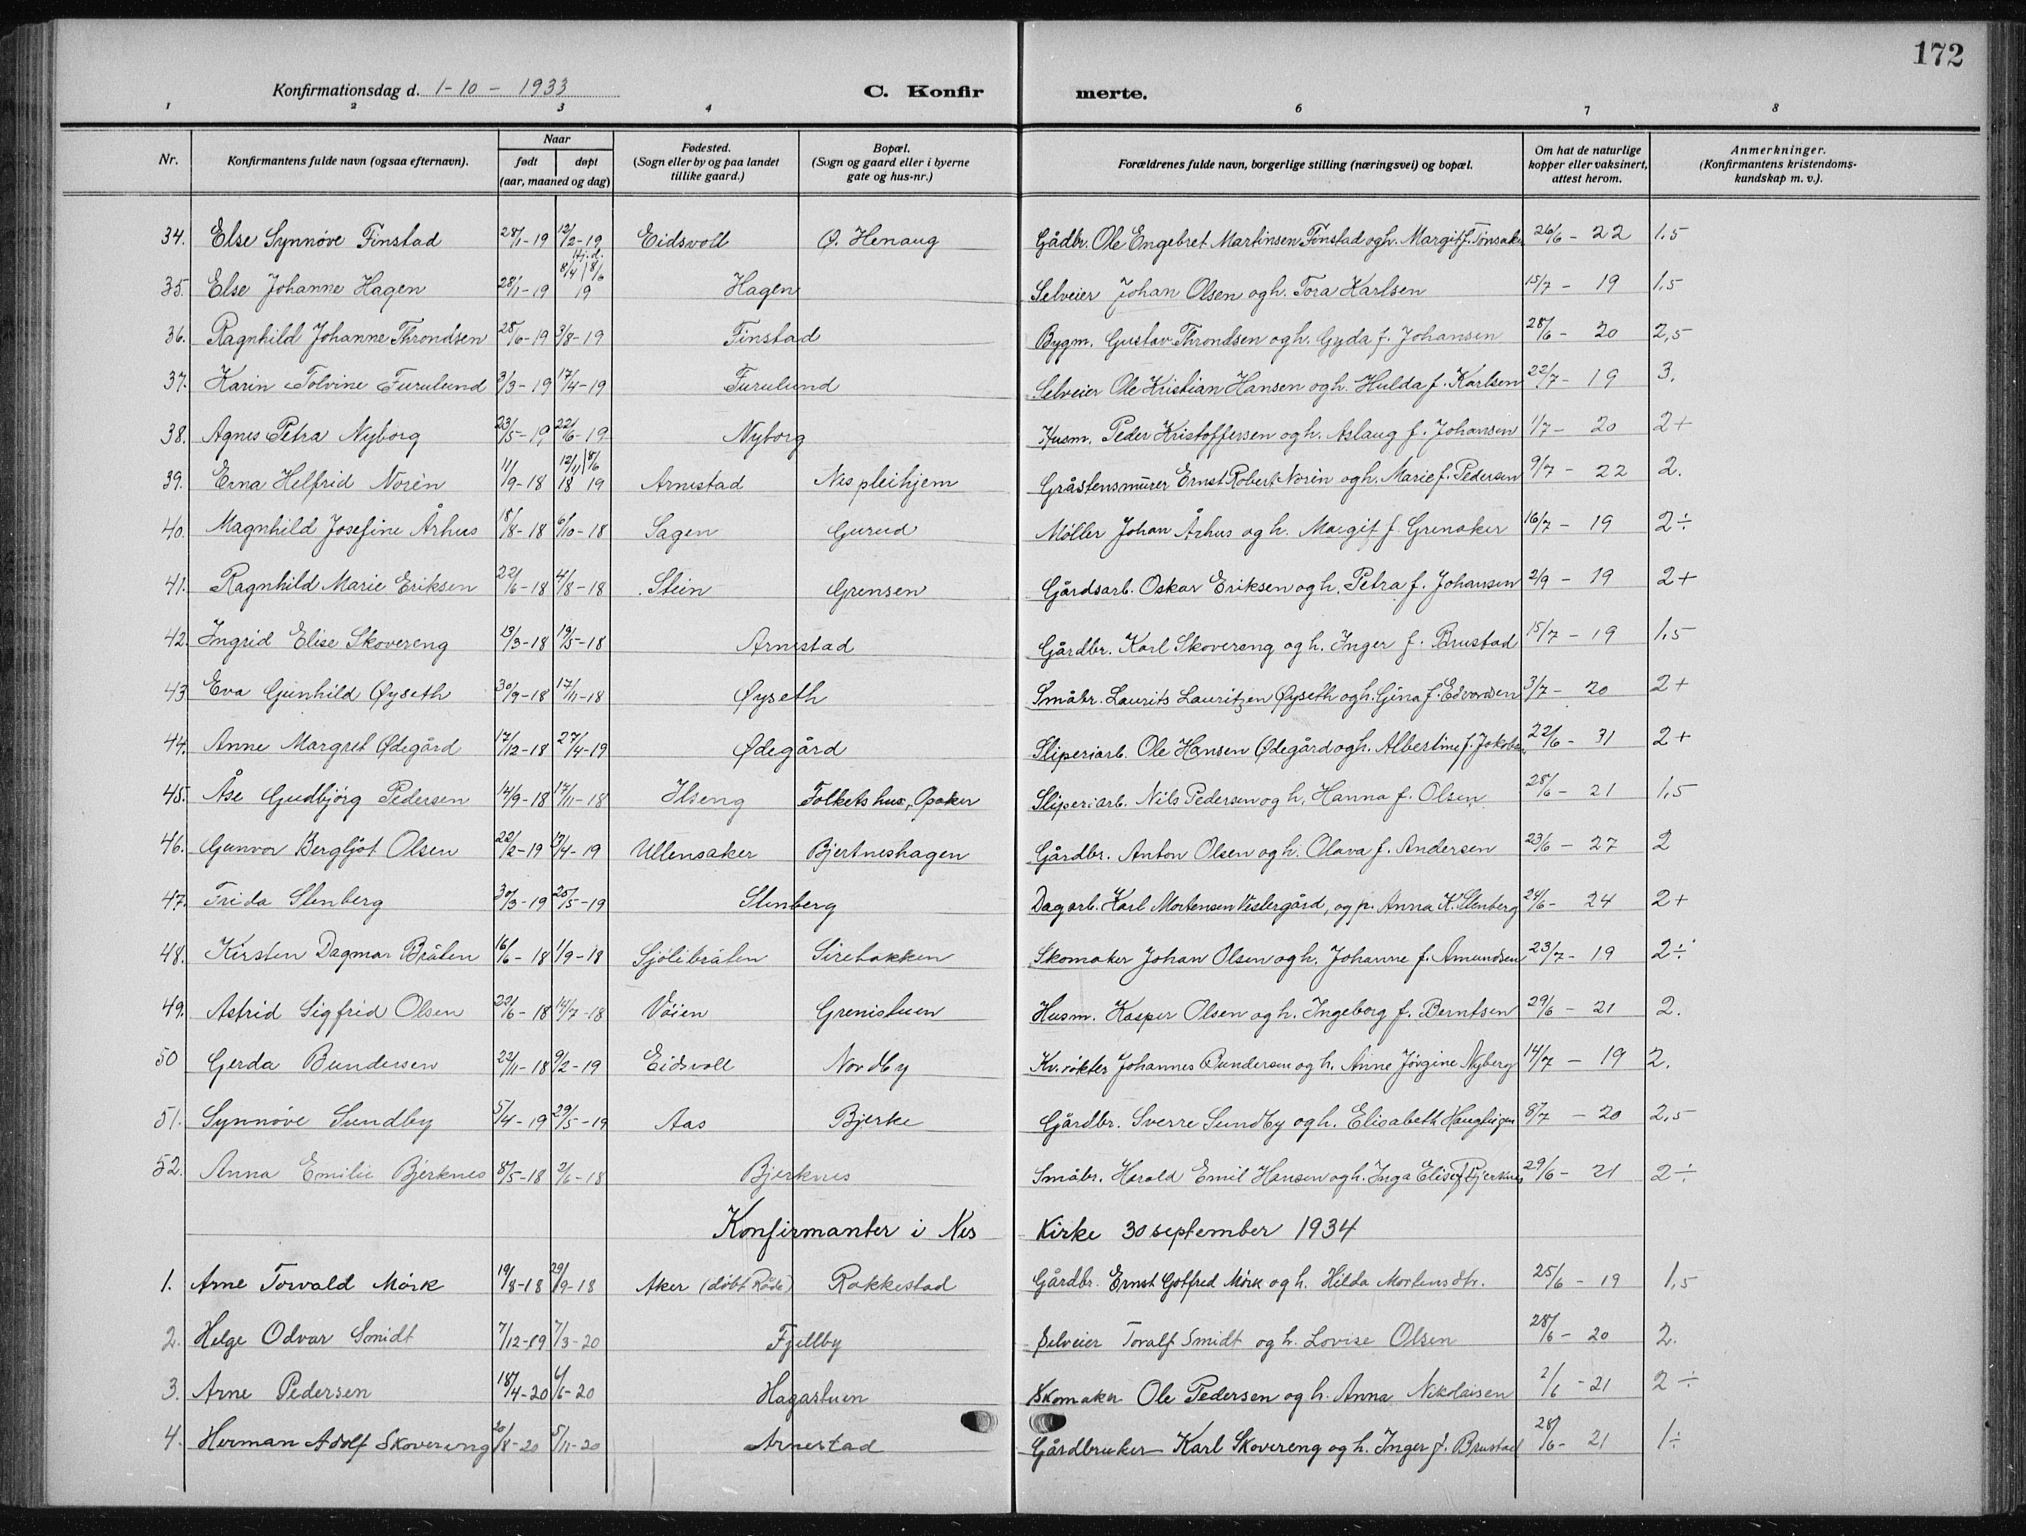 172
Konfirmationsdag d. 1-10-1933 C. Konfir merte.
1 2 3 4 6 7 8
Nr. Konfirmantens fulde navn (ogsaa efternavn). Naar født døpt (aar, maaned og dag) Fødested. (Sogn eller by og paa landet tillike gaard.) Bopæl. (Sogn og gaard eller i byerne gate og hus-nr.) Forældrenes fulde navn, borgerlige stilling (næringsvei) og bopæl. Om hat de naturlige kopper eller vaksinert, attest herom. Anmerkninger. (Konfirmantens kristendoms-kundskap m. v.).
34. Else Synnøve Finstad 28/1-19 12/2-19 Eidsvoll Ø. Henaug Gådbr. Ole Engebret Martinsen Finstad og h. Margit f. Tønsaker 26/6 - 22 1.5
35. Else Johanne Hagen 28/1-19 Hj.d. 8/4 | 8/6 19 Hagen Selveier Johan Olsen og h. Tora Karlsen 15/7 - 19 1.5
36. Ragnhild Johanne Throndsen 28/6-19 3/8-19 Finstad Bygm. Gustav Throndsen og h. Gyda f. Johansen 28/6 - 20 2,5
37. Karin Tolvine Furulund 3/3-19 17/4-19 Furulund Selveier Ole Kristian Hansen og h. Hulda f. Karlsen 22/7 - 19 3.
38. Agnes Petra Nyborg 23/5-19 22/6-19 Nyborg Husm. Peder Kristoffersen og h. Aslaug f. Johansen 1/7 - 20 2+
39. Erna Helfrid Norèn 11/9-18 12/11 18 | 8/6 19 Arnestad Nes pleihjem Gråstensmurer Ernst Robert Norèn og h. Marie f. Pedersen 9/7 - 22 2.
40. Magnhild Josefine Århus 18/8-18 6/10-18 Sagen Gurud Møller Johan Århus og h. Margit f. Grenaker 16/7 - 19 2÷
41. Ragnhild Marie Eriksen 22/6-18 4/8-18 Stein Grensen Gårdsarb. Oskar Eriksen og h. Petra f. Johansen 2/9 - 19 2+
42. Ingrid Elise Skovereng 13/3-18 19/5-18 Arnestad Gårdbr. Karl Skovereng og h. Inger f. Brustad 15/7 - 19 1.5
43 Eva Gunhild Øyseth 30/9-18 17/11-18 Øyseth Småbr. Laurits Lauritzen Øyseth og h. Gina f. Edvardsen 3/7 - 20 2+
44. Anne Margret Ødegård 17/12-18 27/4-19 Ødegård Sliperiarb. Ole Hansen Ødegård og h. Albertine f. Jakobsen 22/6 - 31 2+
45. Åse Gudbjørg Pedersen 14/9-18 17/11-18 Ilseng Folkets hus, Opaker Sliperiarb. Nils Pedersen og h. Hanna f. Olsen 28/6 - 21 1,5
46. Gunvor Bergljot Olsen 22/2-19 13/4-19 Ullensaker Bjertneshagen Gårdbr. Anton Olsen og h. Olava f. Andersen 23/6 - 27 2
47. Frida Stenberg 30/3-19 25/5-19 Stenberg Dagarb. Karl Mortensen Vestergård, og p. Anna K. Stenberg 24/6 - 24 2+
48. Kirsten Dagmar Bråten 16/6-18 1/9-18 Sjølibråten Sirebakken Skomaker Johan Olsen og h. Johanne f. Amundsen 23/7 - 19 2÷
49. Astrid Sigfrid Olsen 22/6-18 14/7-18 Vøien Grenistuen Husm. Kasper Olsen og h. Ingeborg f. Berntsen 29/6 - 21 2.
50 Gerda Bundersen 22/11-18 9/2-19 Eidsvoll Nordby Kv.røkter Johannes Bundersen og h. Anne Jørgine Nyberg 14/7 - 19 2.
51. Synnøve Sundby 5/4-19 29/5-19 Aas Bjerke Gårdbr. Sverre Sundby og h. Elisabeth 8/7 - 20 2,5
52. Anna Emilie Bjerknes 8/5-18 2/6-18 Bjerknes Småbr. Harald Emil Hansen og h. Inga Elise f. Bjerknes 29/6 - 21 2÷
Konfirmanter i Nes Kirke 30 september 1934
1. Arne Torvald Mørk 19/8-18 29/9-18 Aker (døbt Råde) Rakkestad Gårdbr. Ernst Gotfred Mørk og h. Hilda Mortensdtr. 25/6 - 19 1,5
2. Helge Odvar Smidt 7/12-19 7/3-20 Fjellby Selveier Toralf Smidt og h. Lovise Olsen 28/6 - 20 2.
3. Arne Pedersen 18/4-20 6/6-20 Hagastuen Skomaker Ole Pedersen og h. Anna Nikolaisen 2/6 - 21 2÷
4. Herman Adolf Skovereng 20/8-20 5/11-20 Arnestad Gårdbruker Karl Skovereng og h. Inger f. Brustad 28/6 - 21 1÷